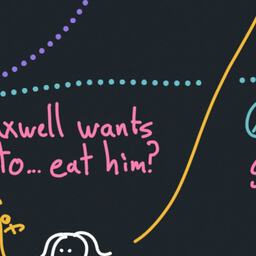 xwell wants
to... eat him?